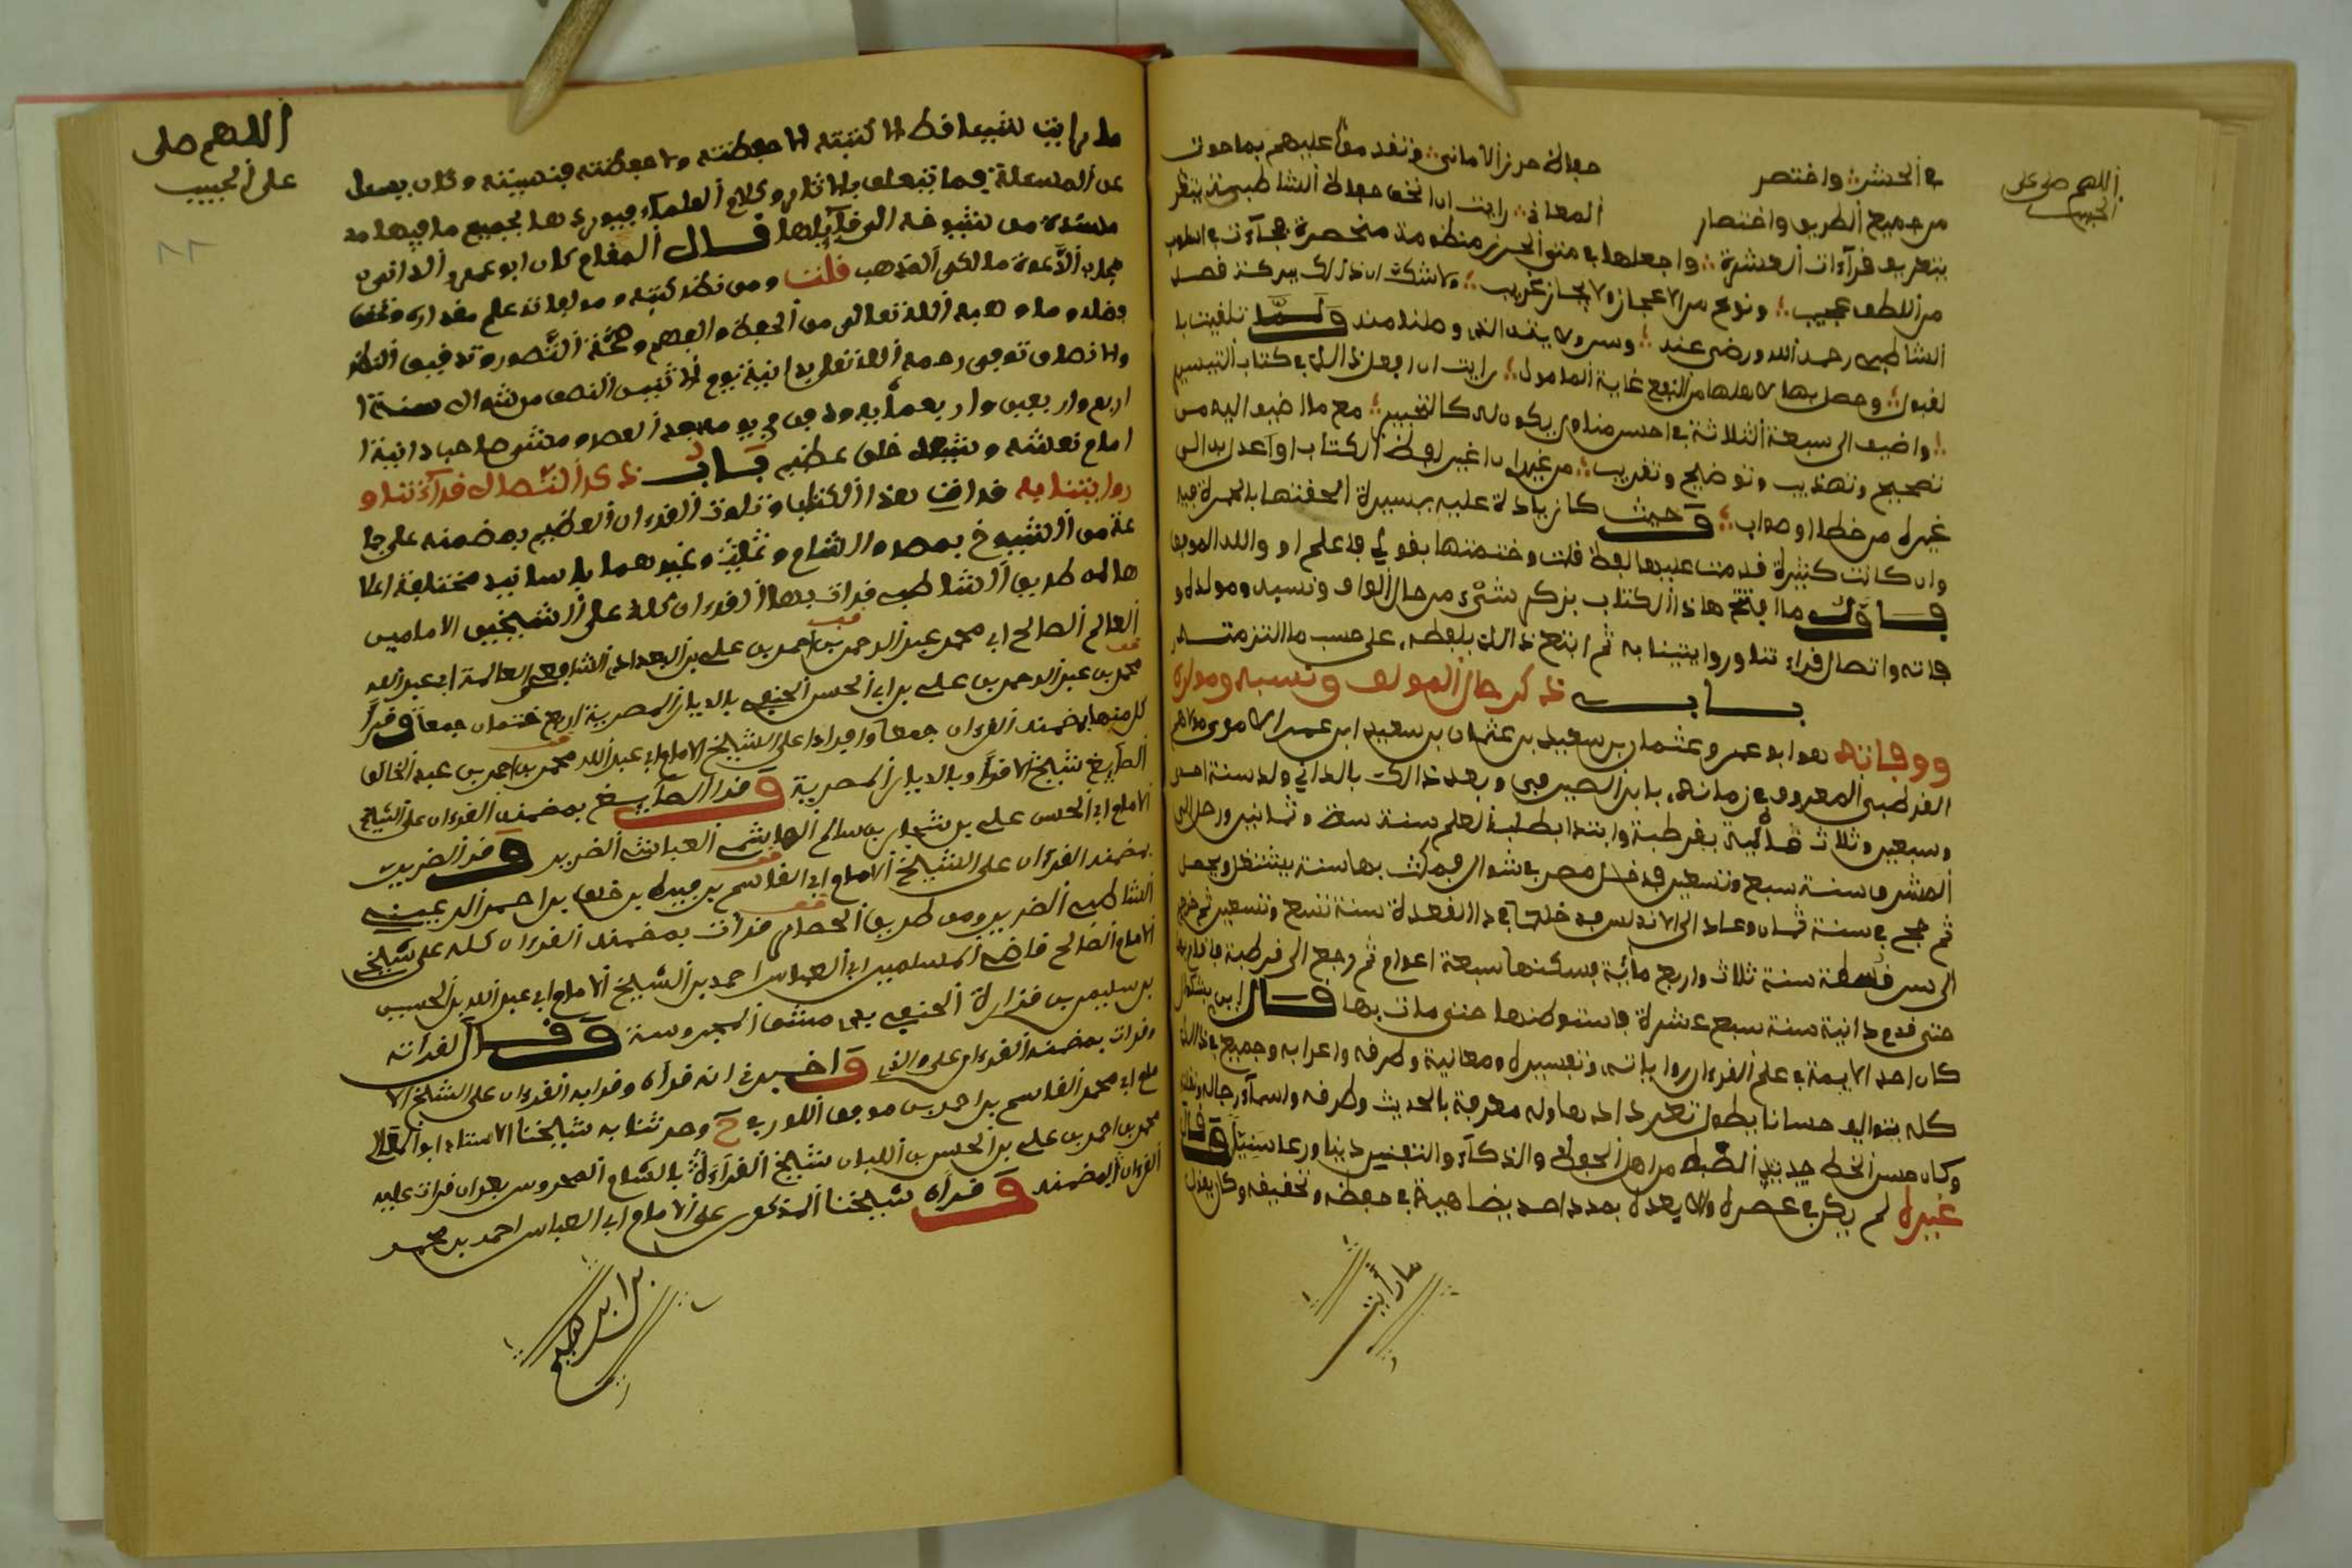 اللهم صل على
الحبيب
في العشر واختصر حفاظ حرز الاماني وتقدموا عليهم بما حوت
من جميع الطريق واختصار المعاني رايت ان اتحف حفاظ الشاطبية بنظر
بتعريف قراءات العشرة واجعلها في متن الحرز منظومة مختصرة فجاءت في اسلوب
من اللطف عجيب ونوع من الاعجاز والايجاز غريب ولا شك ان ذلك ببركة قصد
الشاطبي رحمه الله ورضي عنه وسر ولايته الذي وصلنا منه ولما تلقيت با
لقبول وحصل بها لاهلها من النفع غاية المامول رايت ان افعل ذلك في كتاب التيسير
واضيف الى سبعه الثلاثة في احسن منوال يكون له كالتحبير مع ما اضيف اليه من
تصحيح وتهذيب وتوضيح وتقريب من غير ان اغير لفظ الكتاب او اعدل به الى
غيره من خطا او صواب وحيث كان زيادة عليه يسيرة الحقتها بالحمرة فيه
وان كانت كثيرة قدمت عليها لفظ قلت وختمتها بقولي فاعلم او والله الموفق
فاول ما افتتح هاذا الكتاب بذكر شيء من حال المؤلف ونسبه ومولده و
فاته واتصال قراءتنا وروايتنا به ثم اتبع ذلك بلفظه على حسب ما التزمته
باب ذكر حال المؤلف ونسبه ومولده
ووفاته هو ابو عمرو عثمان بن سعيد بن عثمان بن سعيد ابن عمر الاموي مولاهم
القرطبي المعروف في زمانه بابن الصيرفي وبعد ذالك بالداني ولد سنة احدى
وسبعين وثلاث مائية بقرطبة وابتدا بطلب العلم سنة ست وثمانين ورحل الى
المشرق سنة سبع وتسعين فدخل مصر في شوال فمكث بها سنة يشتغل ويحصل
ثم حج في سنة ثمان وعاد الى الاندلس فدخلها في ذا القعدة سنة تسع وتسعين ثم خرج
الى سرقسطة سنة ثلاث واربع مائة فسكنها سبعة اعوام ثم رجع الى قرطبة
حتى قدم دانية سنة سبع عشرة فاستوطنها حتى مات بها قال ابن بشكوال
كان احد الايمة في علم القرءان رواياته وتفسيره ومعانيه وطرقه واعرابه وجمع في ذالك
كله تواليف حسانا يطول تعدادها وله معرفة بالحديث وطرقه واسماء رجاله ونقلته
وكان حسن الخط جيد الضبط من اهل الحفظ والذكاء والتفنن دينا ورعا سنيا وقال
غيره لم يكن في عصره ولا بعده بمدد احد يضاهيه في حفظه وتحقيقه وكان يقول
ما رايت
اللهم صلى
على الحبيب
ما رايت شيئا قط الا كتبته الا حفظته ولا حفظته فنسيته وكان يسءل
عن المسءلة فيما يتعلق بالاثار وكلام العلماء فيوردها بجميع ما فيها
مسندة من شيوخه الى قايلها قال المغامي كان ابو عمرو الداني
مجاب الدعوة مالكي المذهب قلت ومن نظر كتبه ومولفاته علم مقداره
وفضله وما وهبه الله تعالى من الحفظ والفهم وصحة التصور وتدقيق النظر
والانصاف توفي رحمه الله تعلى بدانية يوم الاثنين النصف من شوال سنة ا
اربع واربعين واربعمايه ودفن من يومه بعد العصر ومشى صاحب دانية ا
امام نعشه وشيعه خلق عظيم باب ذكر اتصال قراءتنا و
روايتنا به قرات هذا الكتاب وتلوت القرءان العظيم بمضمنه على جما
عة من الشيوخ بمصر والشام وغيرهما باسانيد مختلفة
طريق الشاطبي قرات بهذا القرءان كله على الشيخين الامامين
العالم الصالح ابي محمد عبد الرحمن بن احمد بن علي بن البغدادي الشافعي العالمة ابي عبد الله
محمد بن عبد الرحمن بن علي بن ابي الحسن الحنفي بالديار المصرية اربع ختمات جمعا وقرا
كل منهما بمضمنه القرءان جمعا وافرادا على الشيخ الامام ابي عبد الله محمد بن احمد بن عبد الخالق
الصايغ شيخ الاقراء بالديار المصرية وقرا الصايغ بمضمنه القرءان على الشيخ
الامام ابي الحسن علي بن شجاع بن سالم الهاشمي العباسي الضرير وقرا الضرير
بمضمنه القرءان على الشيخ الامام ابي القاسم بن فيره بن خلف بن احمد الرعيني
الشاطبي الضرير ومن طريق الحصار قرات بمضمنه القرءان كله على شيخي
الامام الصالح قاضي المسلمين ابي العباس احمد بن الشيخ الامام ابي عبد الله بن الحسين
بن سليمن بن فزارة الحنفي بدمشق المحروسة وقال القراته
وقرات بمضمنه القرءان على والدي واخبرني انه قراه وقرا به القرءان على الشيخ الا
مام ابي محمد القاسم بن احمد بن موفق اللورقي ح وحدثنا به شيخنا الاستاذ ابو المعالي
محمد بن احمد بن علي بن الحسن بن اللبان شيخ القراءة بالشام المحروس بعد ان قرات عليه
القرءان بمضمنه وقراه شيخنا المذكور على الامام ابي العباس احمد بن محمد
بن ابراهيم